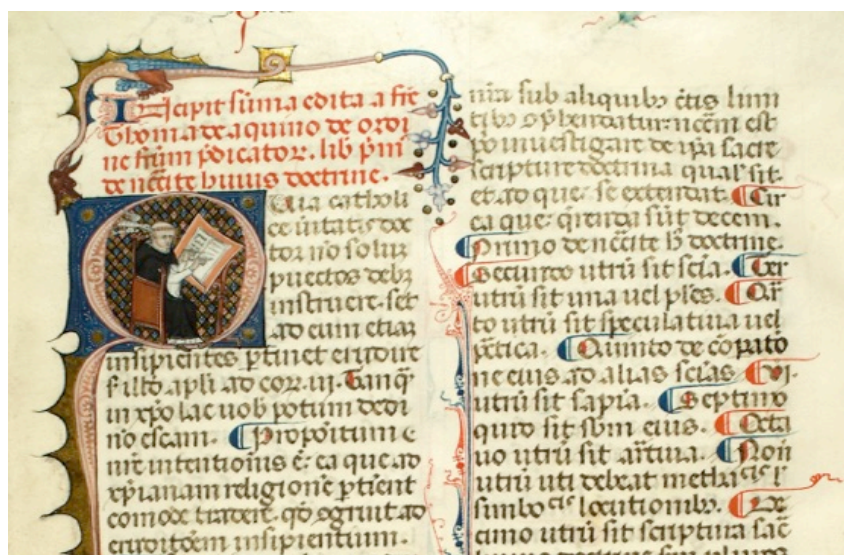 Incipit sūma edita a fr̄e
Thoma de aquino de ordi
ne fr̄um p̄dicator. lib p̄m
de nc̄cite huius doctrine.
Quia catholi
ce ūitatis doc
tor nō soluꝫ
puectos debꝫ
instruere. set
ad eum etiaꝫ
insipientes ꝑtinet erudire
apl̄i ad cor. iii. Tanqͫ
in xp̄o lac uob̄ potum dedi
nō escam. Propositum
nr̄e intentionis ē: ea que ad
xp̄ianam religionē ꝑtient
eo modo tradere. ad
eruditōem insipientium.
sub aliquibꝫ limi
tibꝫ nc̄cm est
po inuestigare de ip̄a sacre
scripture doctrina qual' sit.
et ad que se extendat. Cir
ca que q̄renda sūt decem.
Primo de nc̄cite h̄ doctrine.
Secundo utrū sit sc̄ia. Ter
utrū sit una uel pl̄es. Qār
to utrū sit speculatiua uel
pc̄tica. Quinto de cōꝑatō
ne eius ad alias sc̄ias. Vi.
utrū sit sapīa. Septimo
quid sit sb̄m eius. Octa
uo utrū sit ar̄tiua. Non
utrū uti debeat metha͛cis l'
simbo͛cis locutionibꝫ. De
cimo utrū sit scriptura sac̄